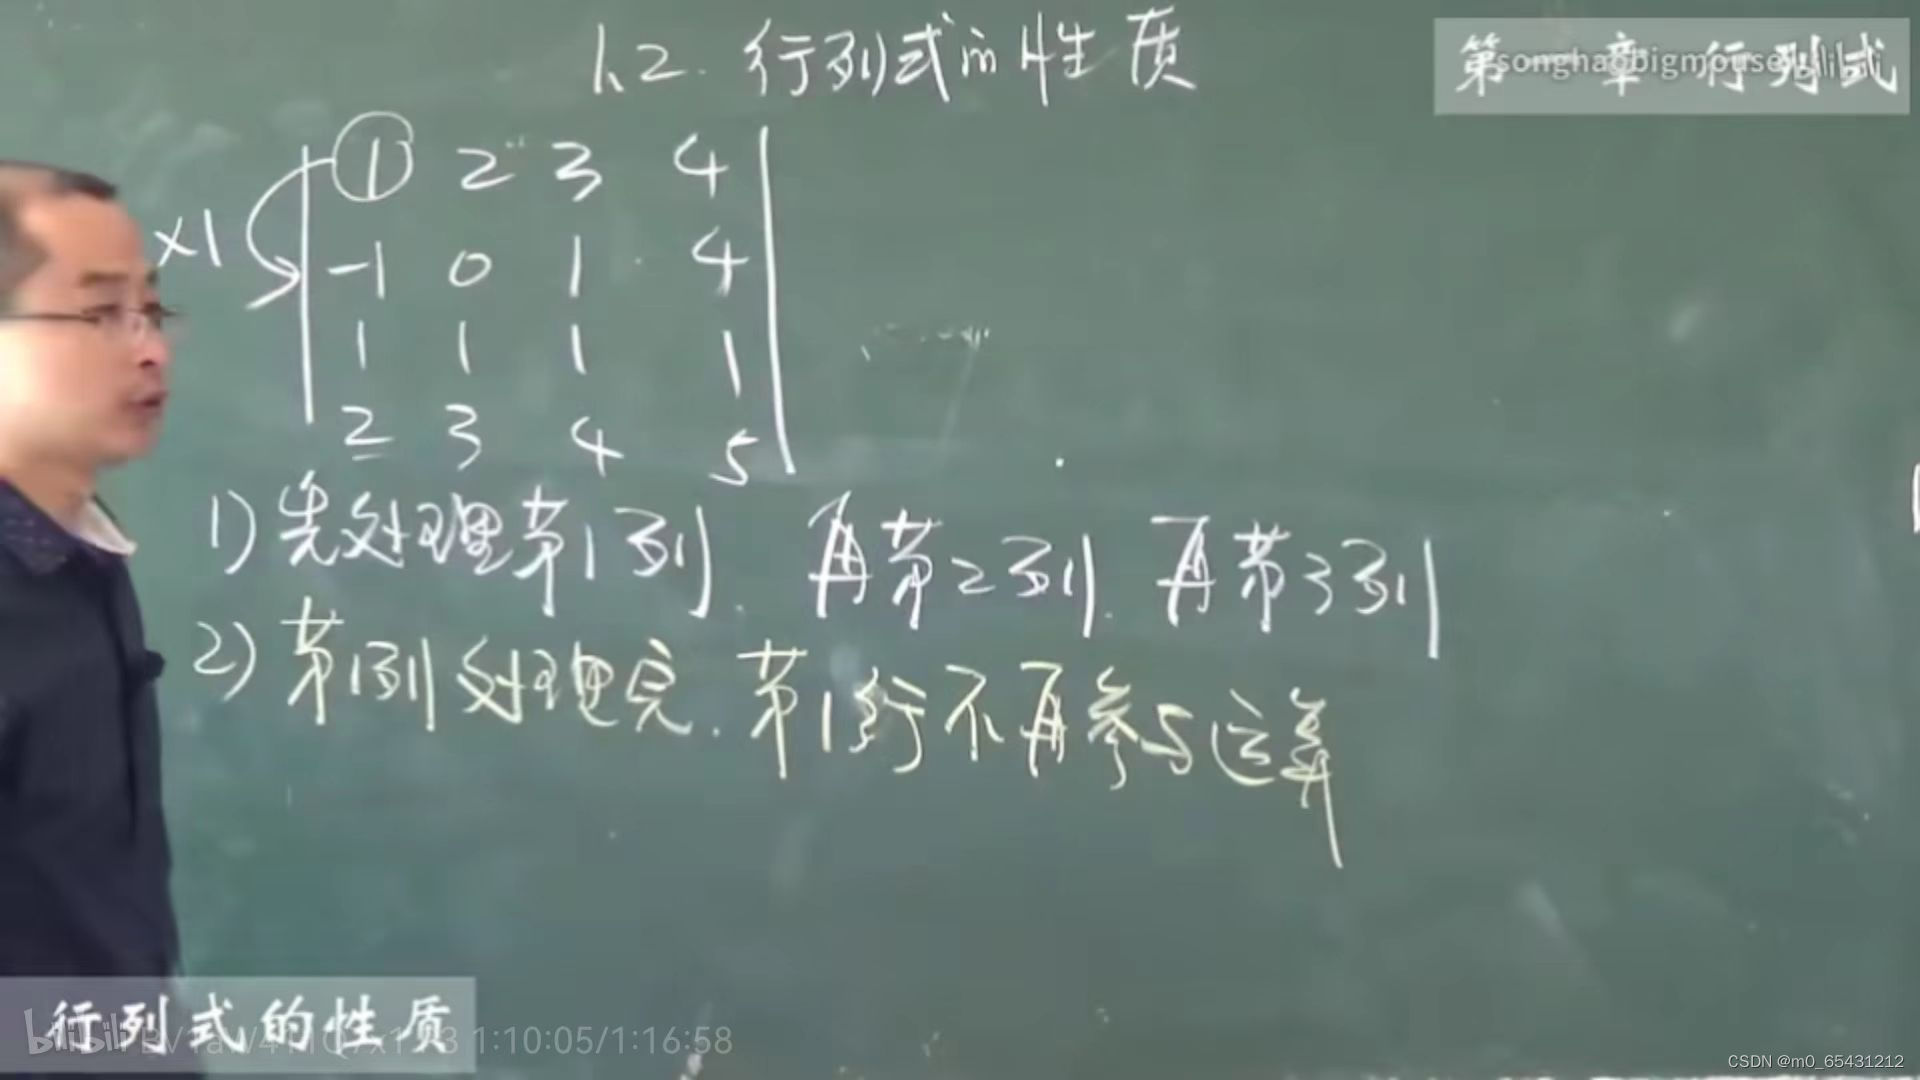 1.2. 行列式的性质
第一章 行列式
songhaobigmouse
bilibili
1 2 3 4
×1
-1 0 1 4
1 1 1 1
2 3 4 5
1) 先处理第1列. 再第2列. 再第3列
2) 第1列处理完. 第1行不再参与运算
行列式的性质
bilibili
1:10:05/1:16:58
CSDN @m0_65431212